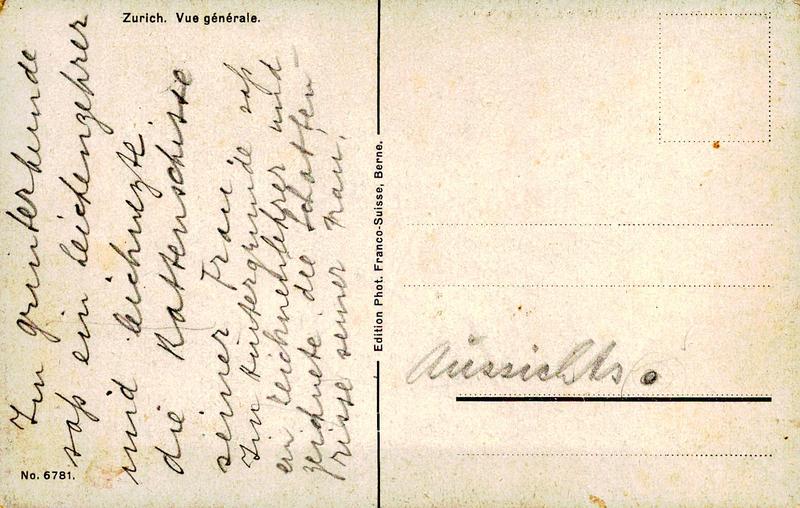 Zurich. Vue générale.
Im grunterhunde
saß ein Leichengehrer
und leichnezte
die Rattenschisse
seiner Frau
Im Hintergrunde saß
ein Zeichnenlehrer und
zeichnete die Schatten-
risse seiner Frau.
No. 6781.
Edition Phot. Franco-Suisse, Berne.
Aussichts